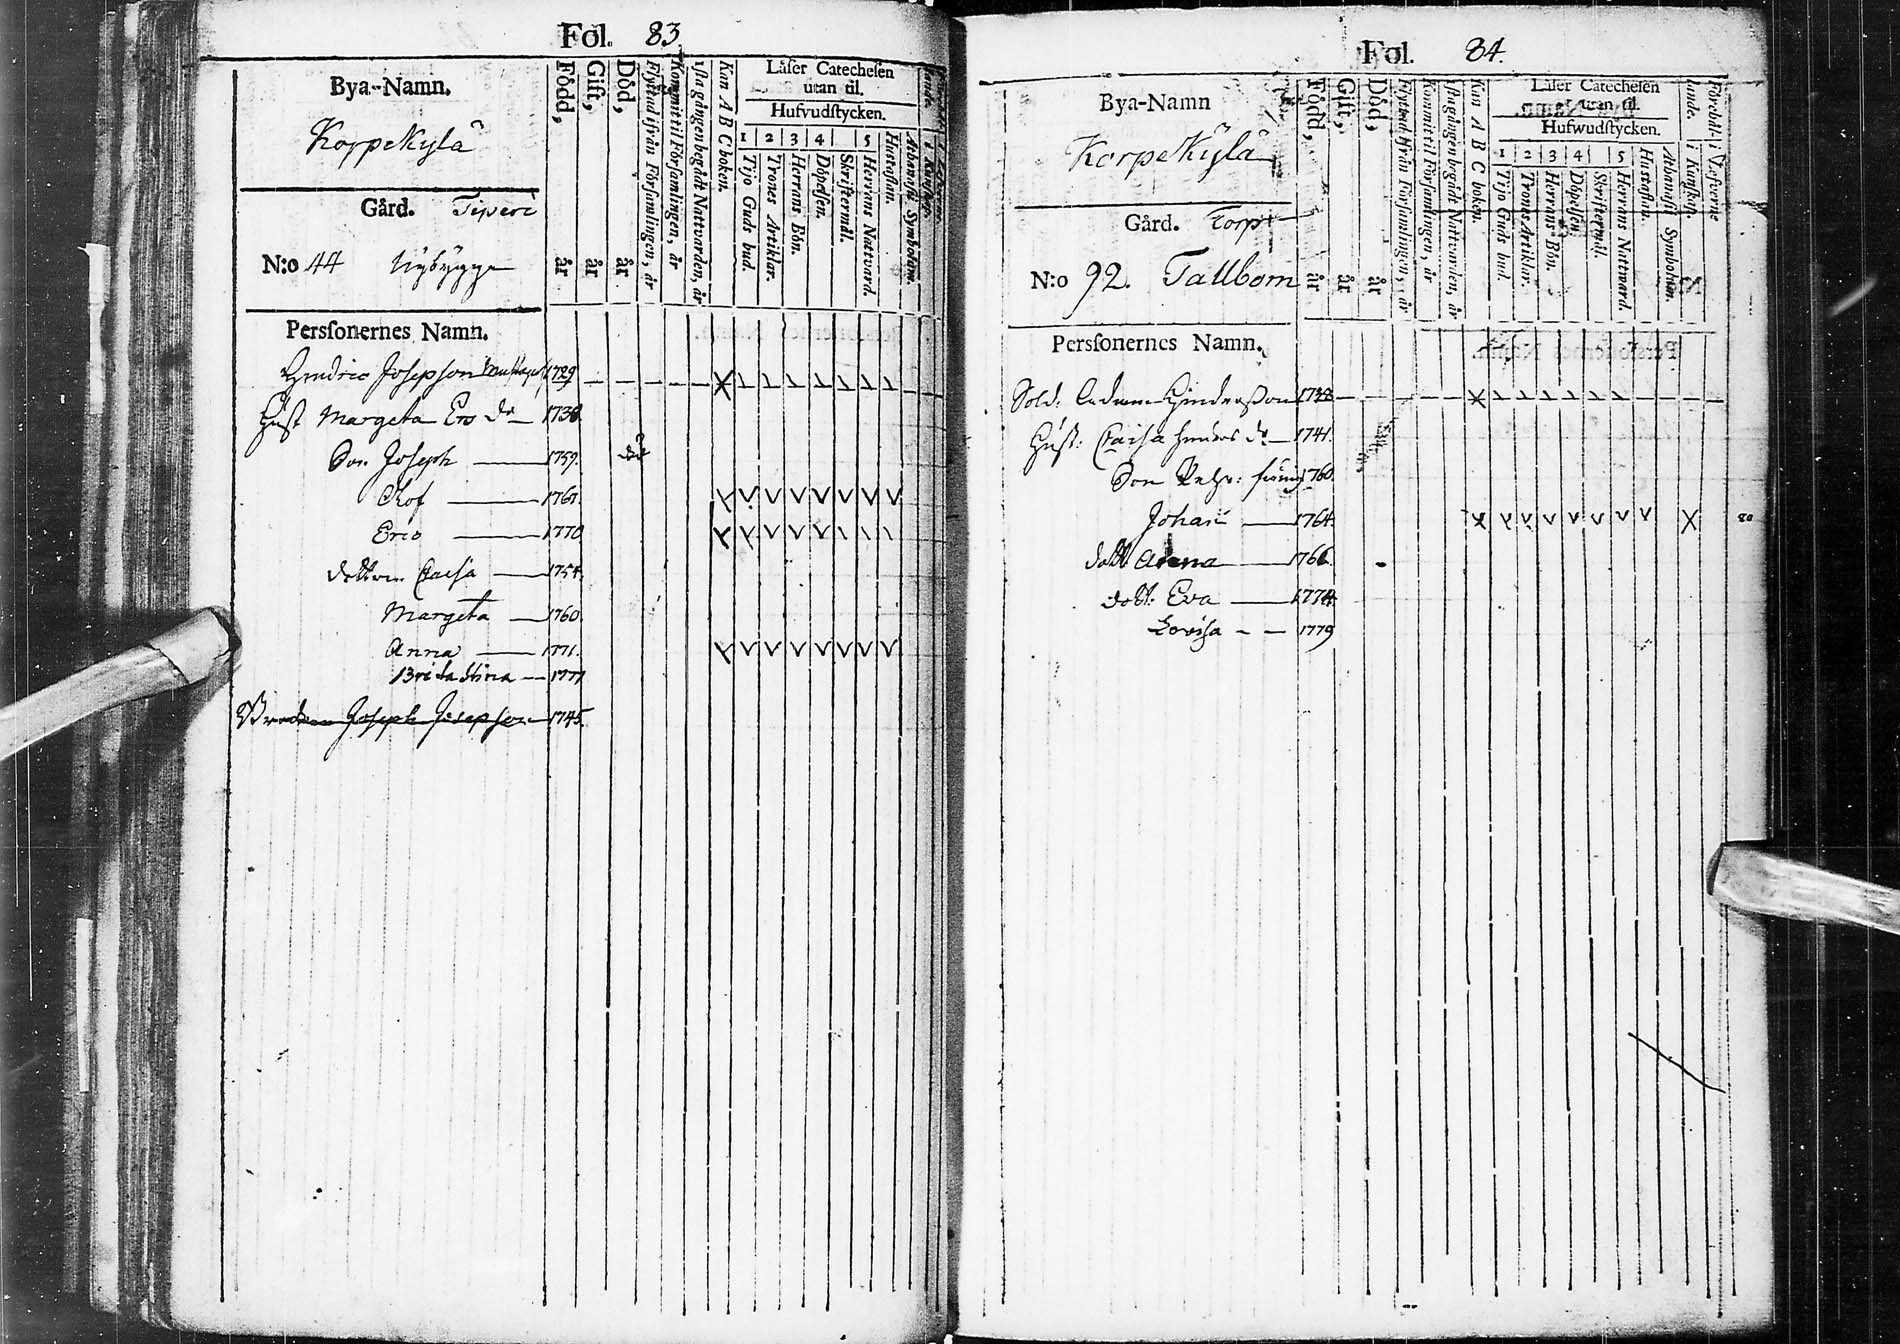 Fol. 83
Bya-Namn.
Korpekylä
Gård. Tiperi
N:o 44 Nybygge
Född, år
Gift, år
Död, år
Flyttad ifrån Församlingen, år
Kommit til Församlingen, år
1sta gången begådt Nattvarden, år
Kan A B C boken.
Låser Catechesen utan til.
Hufvudstycken.
1 2 3 4 5
Tijo Guds bud.
Trones Artiklar.
Herrans Bön.
Döpelsen.
Skriftermål.
Herrans Nattvard.
Hustaflan.
Athanasii Symbolum.
Personernes Namn.
Hindric Josepson 1729
Hust Margeta Ers dr 1738
Son Joseph 1759.
Olof 1767.
Eric 1770
dottren Caisa 1754.
Margeta 1760.
Anna 1771.
Brita Stina 1777
Brodren Joseph Josepson 1745.
Fol. 84.
Bya-Namn
Korpekylä
Gård. Torp
N:o 92. Tallbom
Född, år
Gift, år
Död, år
Flyttad ifrån Församlingen, år
Kommit til Församlingen, år
1sta gången begådt Nattvarden, år
Kan A B C boken.
Låser Catechesen utan til.
Hufwudstycken.
1 2 3 4 5
Tijo Guds bud.
Trones Artiklar.
Herrans Bön.
Döpelsen
Skriftermål.
Herrans Nattvard.
Hustaflan.
Athanasii Symbolum.
Förhåll i Lefverne
lande. i Kunskap.
Personernes Namn.
Sold: Hindersson 1738
Hust: Caisa Hinders dr 1741.
Son 1760.
Johan 1764.
80
dott: Anna 1766.
dott: Eva 1774.
Lovisa 1779